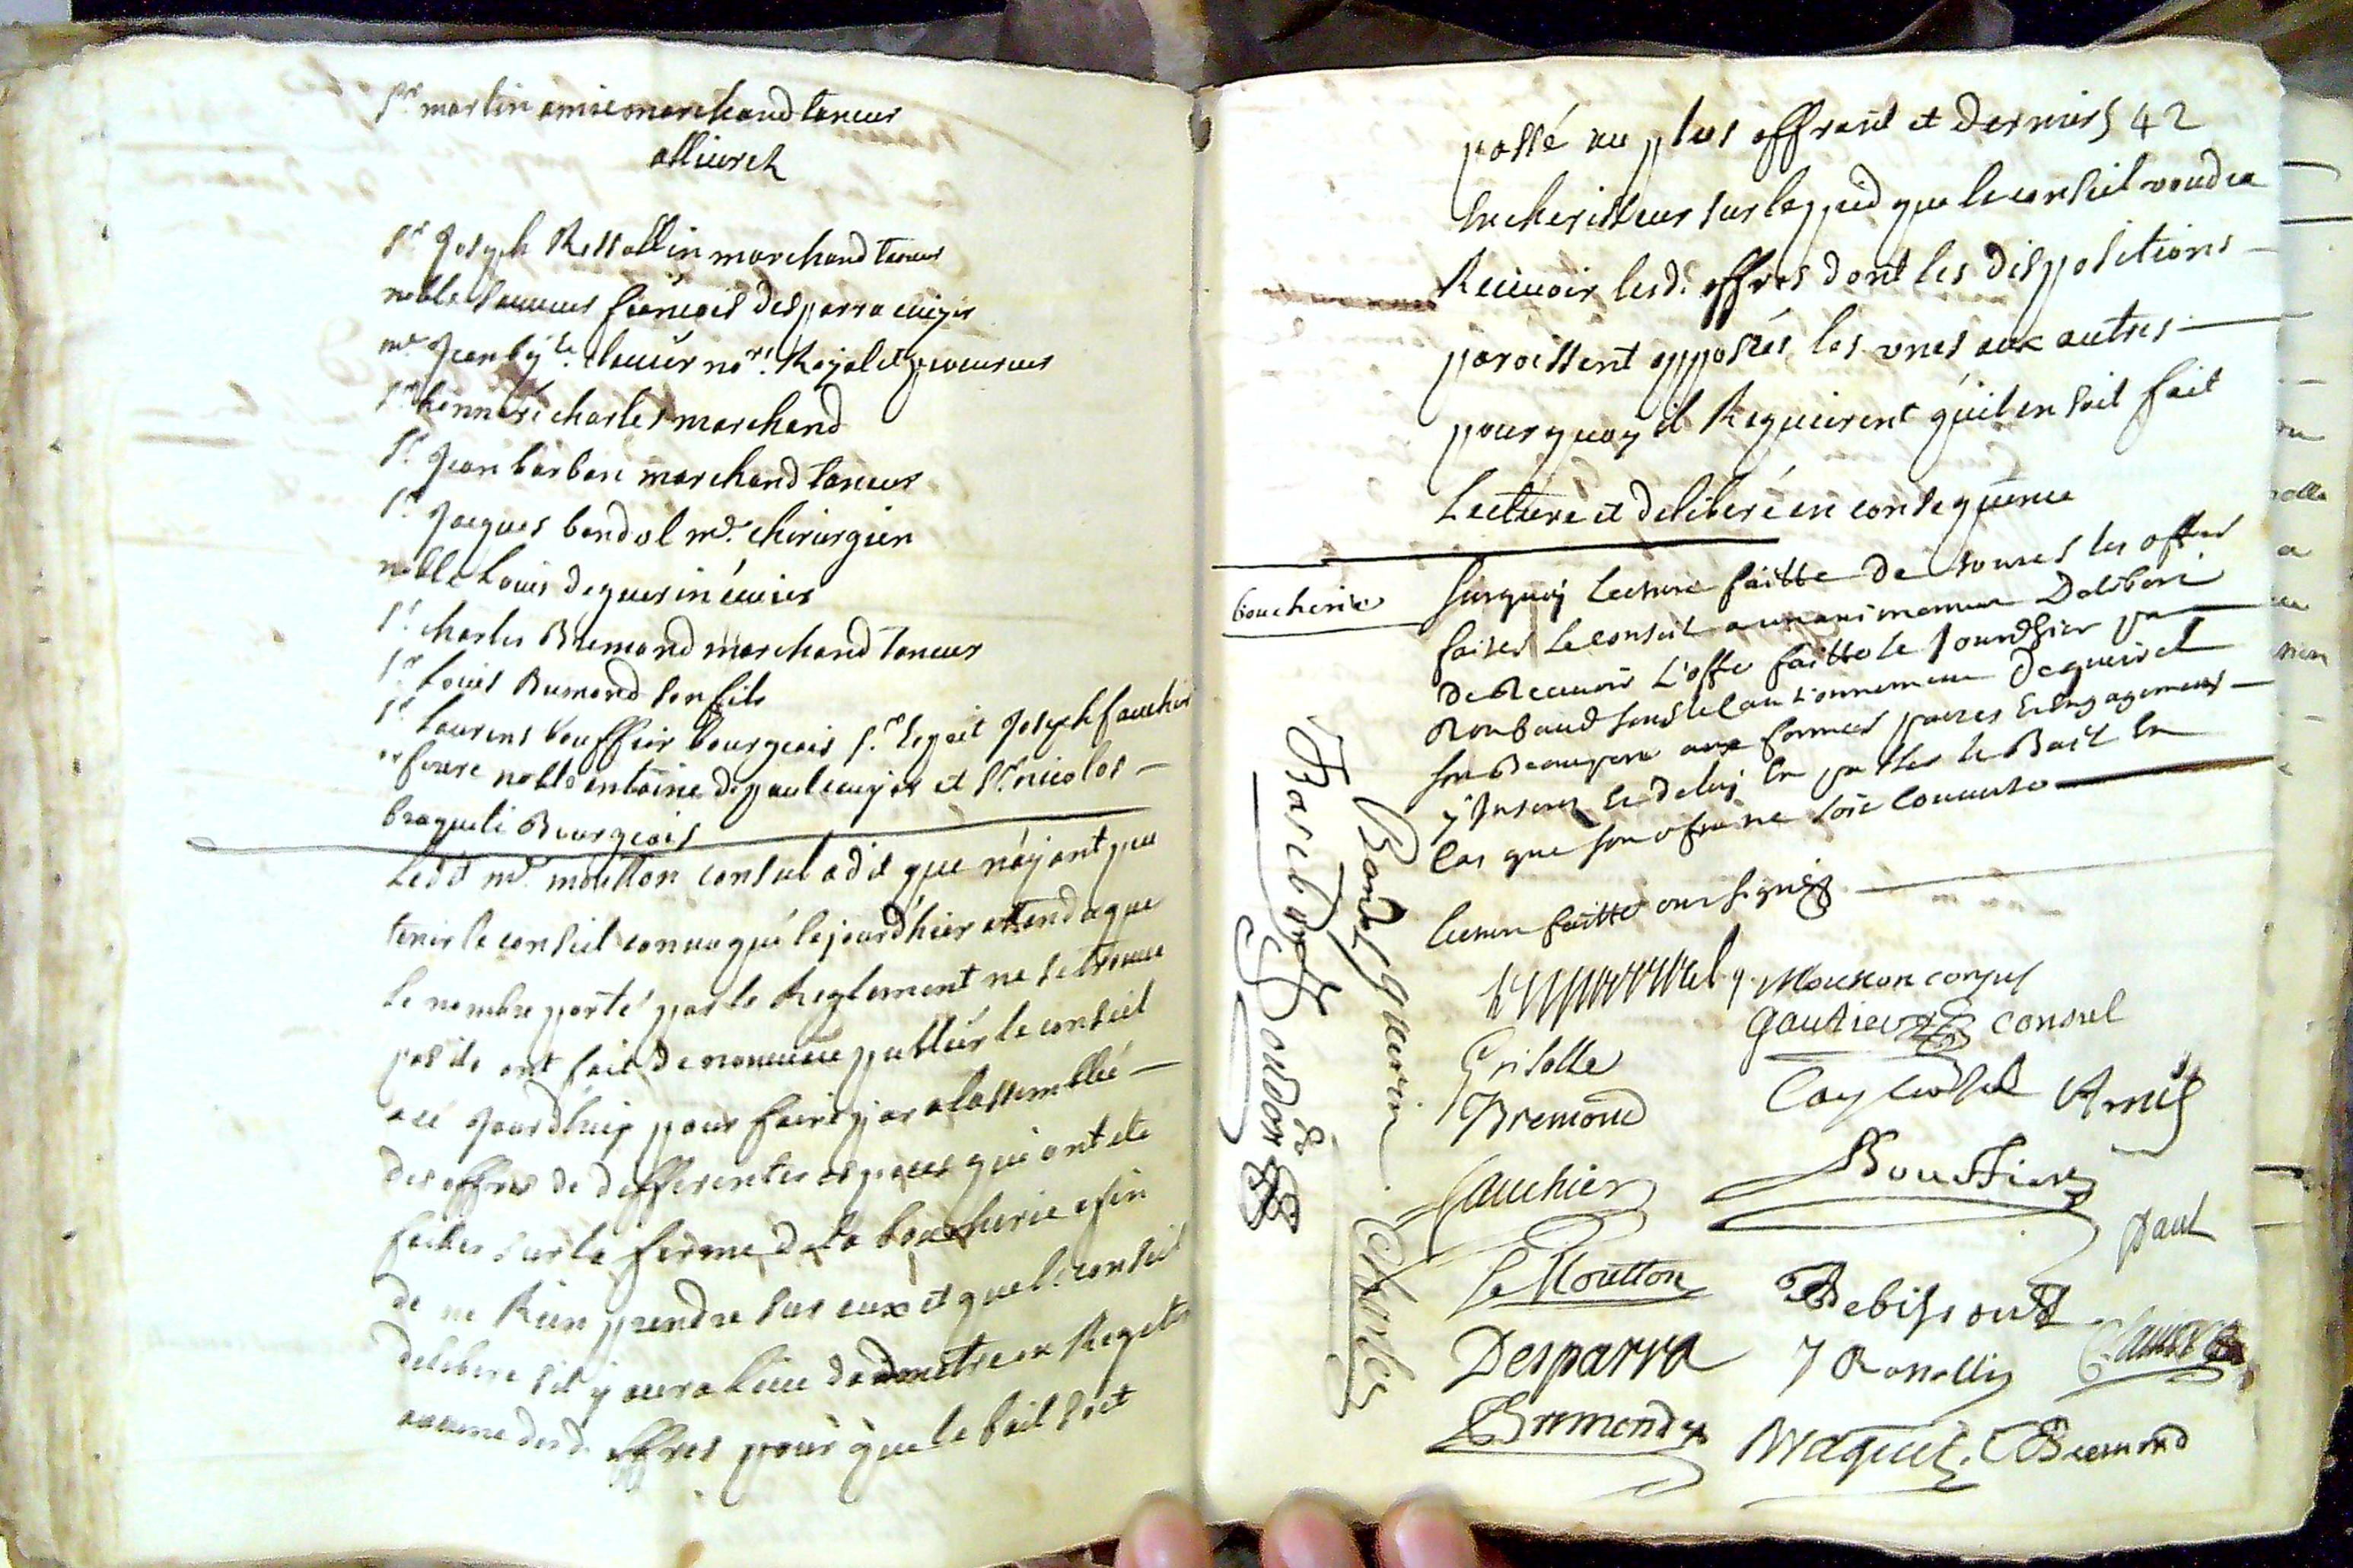 Sr martin amic marchand taneur
allieurs
Sr Joseph Rossollin marchand taneur
noble sauveur francois desparra
me Jean bte. clavier nore. Royal et procureur
Sr honnoré charles marchand
Sr Jean barban marchand taneur
Sr Jacques bandol me. chirurgien
noble Louis de guerin écuier
Sr charles Bremond marchand taneur
Sr Louis Bremond son fils
Sr Laurens bouffier bourgeois Sr Esprit Joseph fauchier
orfevre noble entoine de paul et Sr nicolas
braqueti Bourgeois
Ledit me. moutton consul a dit que n'ayant peu
tenir le conseil convoqué le jourd'hier attendu que
Le nombre porté par le Reglement ne se trouve
pas ils ont fait de nouveau publier le conseil
a cé jourd'huy pour faire par a lassemblée
des offres de differentes especes qui ont ete
faites sur la ferme de la boucherie afin
de ne Rien prendre sur eux et que le conseil
delibere sil y aura lieu dadmettre ou Rejeter
aucune desd. offres pour que le bail soit
passé au plus offrant et dernier 42
Encherisseur sur le pied que le conseil voudra
Recevoir lesd. offres dont les dispositions
paroissent opposées les unes aux autres
pourquoy il Requierent qu'il en soit fait
Lecture et deliberé en consequence
boucherie
Surquoy lecture faitte de toutes les offres
faites le conseil a unanimement Deliberé
de Recevoir L'offre faitte le jourdhier par
Roubaud sous le cautionnement
son Beaupere aux formes pactes et engagements
y Inserés et deluy en passer le Bail en
cas que son offre ne soit couverte
lecture faitte ont signés
Moutton consul
Gautier consul
Grisolle
Bremond
Amic
fauchier
Bouffier
Paul
Le Moutton
Desparra
J Rossollin
Clavier
Bremond
Braquety
CBremond
Bandol
guerin
Charles
Barbaroux